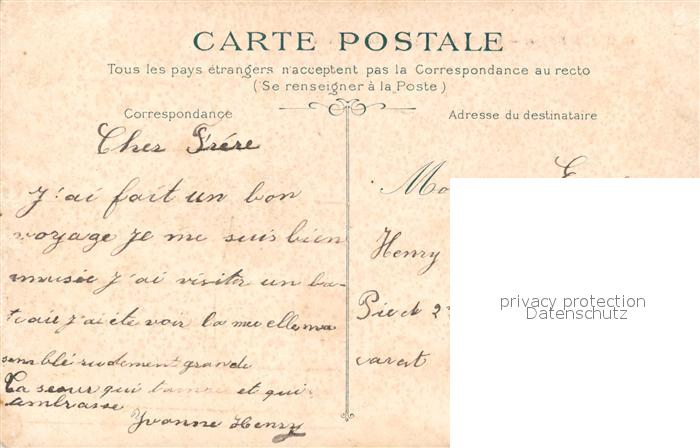 CARTE POSTALE
Tous les pays étrangers n'acceptent pas la Correspondance au recto
(Se renseigner à la Poste)
Correspondance
Adresse du destinataire
Cher Frére
J'ai fait un bon
voyage Je me suis bien
amusée J'ai visiter un ba-
teau J'ai été voir la mer elle ma
semblé rudement grande
Ta seour qui t'aime et qui
t'ambrasse
Yvonne Henry
Mo
Henry
Pie
carat
privacy protection
Datenschutz